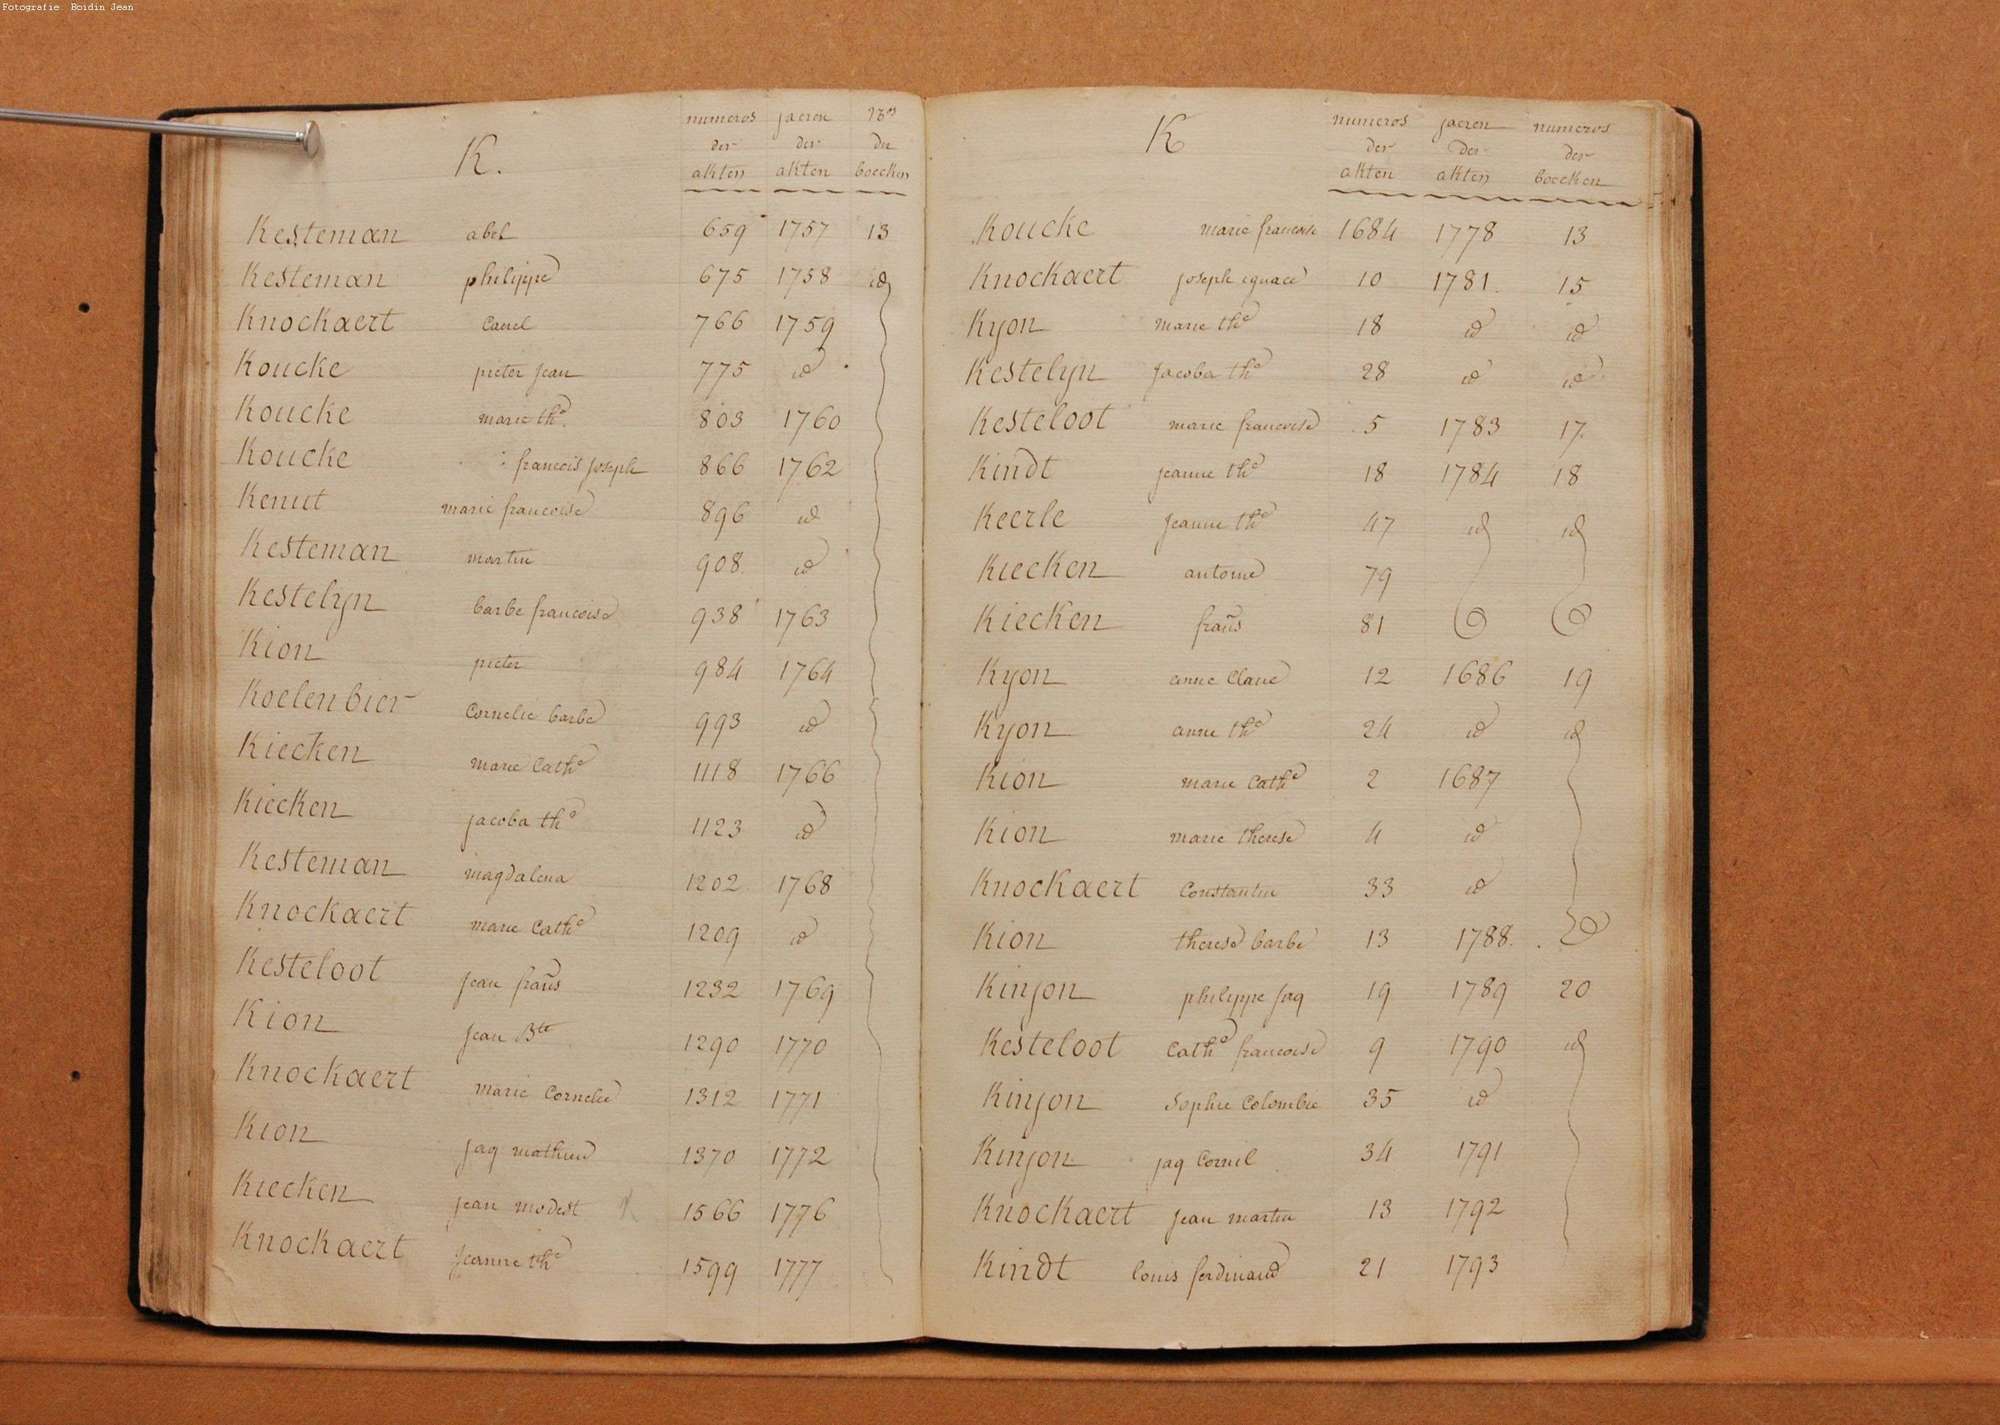 Fotografie: Boidin Jean
K.
numeros jaeren nos
der der der
akten akten boecken
Kesteman abel 659 1757 13
Kesteman philippe 675 1758 id
Knockaert Carel 766 1759
Koucke pieter jean 775 id
Koucke marie the. 803 1760
Koucke francois joseph 866 1762
Kenut marie francoise 896 id
Kesteman martin 908 id
Kestelyn barbe francoise 938 1763
Kion pieter 984 1764
Koelenbier Cornelie barbe 993 id
Kiecken marie Cathe 1118 1766
Kiecken jacoba the 1123 id
Kesteman magdalena 1202 1768
Knockaert marie Cathe 1209 id
Kesteloot jean frans 1232 1769
Kion jean Bte 1290 1770
Knockaert marie Cornelie 1312 1771
Kion jaq mathieu 1370 1772
Kiecken jean modest 1566 1776
Knockaert jeanne the 1599 1777
K
numeros jaeren numeros
der der der
akten akten boecken
Koucke marie francoise 1684 1778 13
Knockaert joseph ignace 10 1781. 15
Kyon marie the 18 id id
Kestelyn jacoba the 28 id id
Kesteloot marie francoise 5 1783 17.
Kindt jeanne the 18 1784 18
Keerle jeanne the 47 id id
Kiecken antoine 79
Kiecken frans 81
Kyon anne Claire 12 1686 19
Kyon anne the 24 id id
Kion marie Cathe 2 1687
Kion marie therese 4 id
Knockaert Constantin 33 id
Kion therese barbe 13 1788.
Kinjon philippe jaq 19 1789 20
Kesteloot Cathe francoise 9 1790 id
Kinjon Sophie Colombe 35 id
Kinjon jaq Cornil 34 1791
Knockaert jean martin 13 1792
Kindt louis ferdinand 21 1793